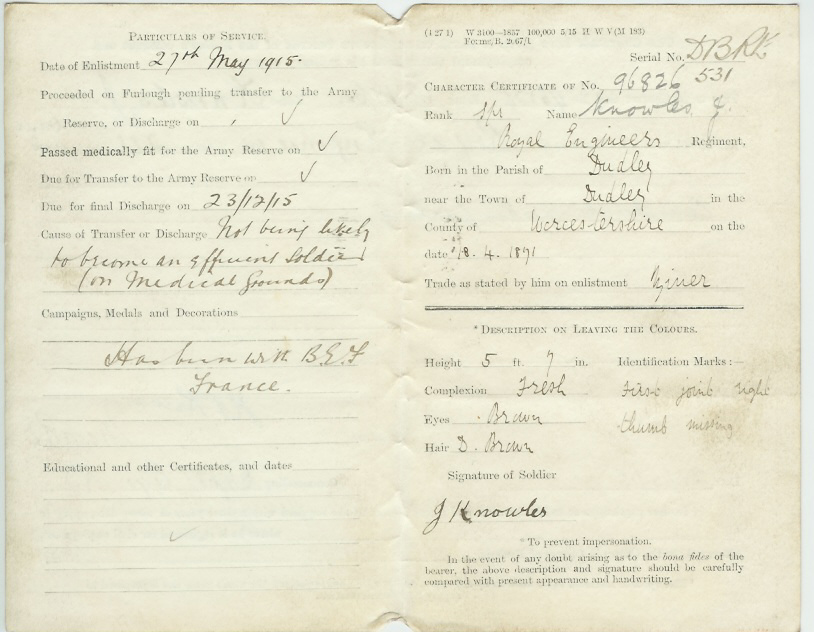 PARTICULARS OF SERVICE.
Date of Enlistment 27th May 1915.
Proceeded on Furlough pending transfer to the Army
Reserve, or Discharge on ✓
Passed medically fit for the Army Reserve on ✓
Due for Transfer to the Army Reserve on ✓
Due for final Discharge on 23/12/15
Cause of Transfer or Discharge Not being likely
to become an efficient Soldier
(on Medical Grounds)
Campaigns, Medals and Decorations
Has been with B.E.F
France.
Educational and other Certificates, and dates
✓
(4 27 1) W 3100—1857 100,000 5/15 H W V(M 193)
Forms/B. 2067/1.
Serial No.
CHARACTER CERTIFICATE OF No. 96826 531
Rank Spr Name Knowles J.
Royal Engineers Regiment,
Born in the Parish of Dudley
near the Town of Dudley in the
County of Worcestershire on the
date 18. 4. 1871
Trade as stated by him on enlistment
* DESCRIPTION ON LEAVING THE COLOURS.
Height 5 ft. 7 in. Identification Marks:—
Complexion Fresh First joint right
Eyes Brown thumb missing
Hair D. Brown
Signature of Soldier
J Knowles
* To prevent impersonation.
In the event of any doubt arising as to the bona fides of the
bearer, the above description and signature should be carefully
compared with present appearance and handwriting.